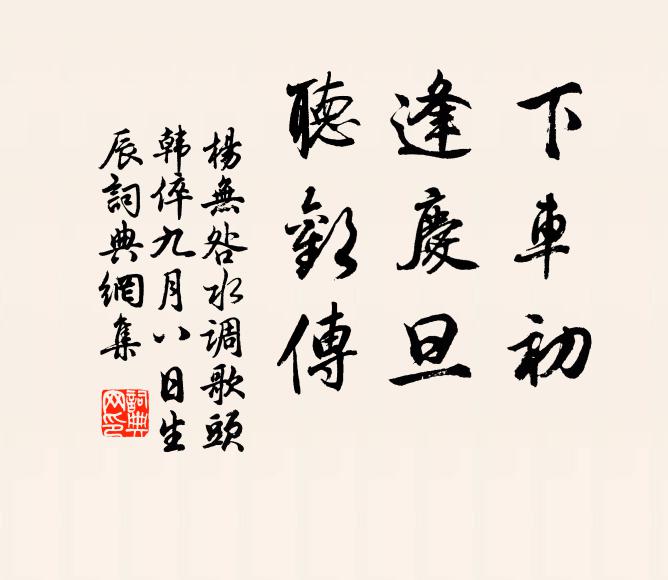 下車初
逢慶旦
聽歡傳
楊無咎水调歌頭
韩倅九月八日生
辰詞典網集
詞典网印